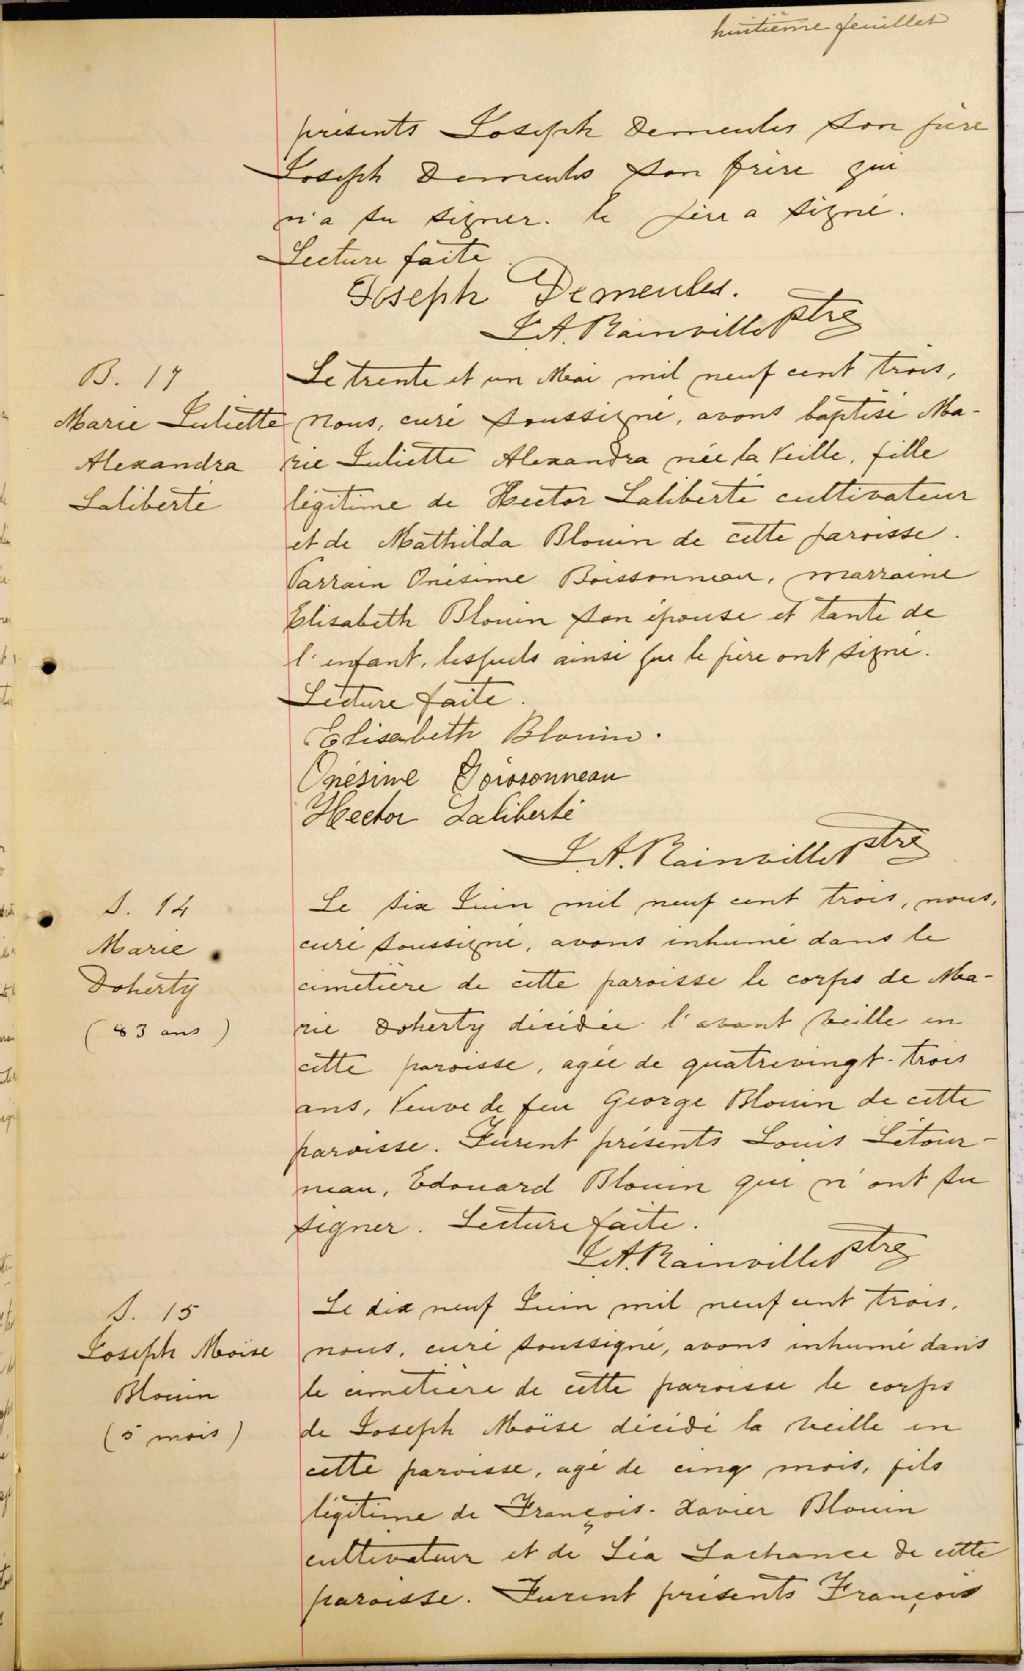 huitième feuillet
présents Joseph Demeules son père
Joseph Demeules son frère qui
n'a su signer. le père a signé.
Lecture faite.
Joseph Demeules.
J.A. Rainville Ptre
B. 17
Marie Juliette
Alexandra
Laliberté
Le trente et un Mai mil neuf cent trois,
nous, curé soussigné, avons baptisé Ma-
rie Juliette Alexandra née la veille, fille
légitime de Hector Laliberté cultivateur
et de Mathilda Blouin de cette paroisse.
Parrain Onésime Boissonneau, marraine
Elisabeth Blouin son épouse et tante de
l'enfant, lesquels ainsi que le père ont signé.
Lecture faite.
Elisabeth Blouin.
Onésime Boissonneau
Hector Laliberté
J.A. Rainville Ptre
S. 14
Marie
Doherty
(83 ans)
Le six Juin mil neuf cent trois, nous,
curé soussigné, avons inhumé dans le
cimetière de cette paroisse le corps de Ma-
rie Doherty décédée l'avant veille en
cette paroisse, agée de quatrevingt-trois
ans, Veuve de feu George Blouin de cette
paroisse. Furent présents Louis Létour-
neau, Edouard Blouin qui n'ont su
signer. Lecture faite.
J.A. Rainville Ptre
S. 15
Joseph Moïse
Blouin
(5 mois)
Le dix neuf Juin mil neuf cent trois,
nous, curé soussigné, avons inhumé dans
le cimetière de cette paroisse le corps
de Joseph Moïse décédé la veille en
cette paroisse, agé de cinq mois, fils
légitime de François-Xavier Blouin
cultivateur et de Léa Lachance de cette
paroisse. Furent présents François